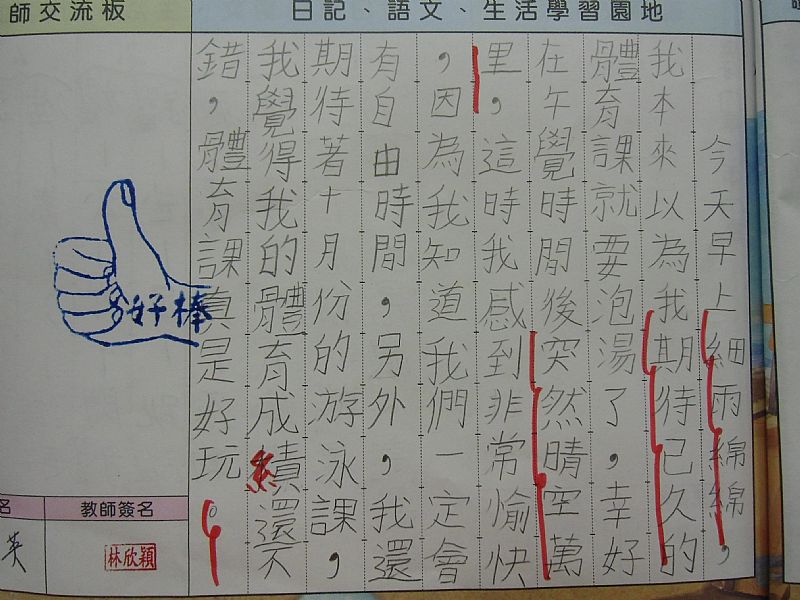 日記、語文、生活學習園地
今天早上細雨綿綿，
我本來以為我期待已久的
體育課就要泡湯了，幸好
在午覺時間後突然晴空萬
里，這時我感到非常愉快
，因為我知道我們一定會
有自由時間，另外，我還
期待著十月份的游泳課，
我覺得我的體育成績還不
錯，體育課真是好玩。
師交流板
好棒
教師簽名
林欣穎
名
英